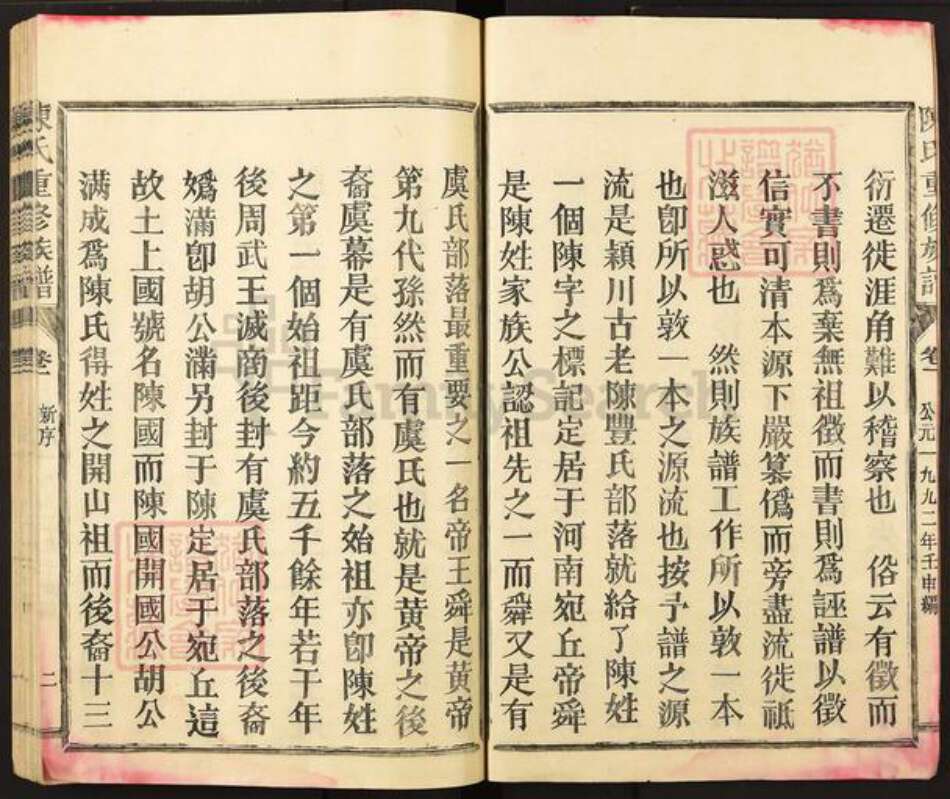 陳氏重修族譜 卷一 公元一九九二年壬申編
衍遷徙涯角難以稽察也 俗云有徵而
不書則爲棄無祖徵而書則爲誣譜以徵
信實可清本源下嚴纂僞而旁盡流徙祗
滋人惑也 然則族譜工作所以敦一本
也卽所以敦一本之源流也按予譜之源
流是穎川古老陳豐氏部落就給了陳姓
一個陳字之標記定居于河南宛丘帝舜
是陳姓家族公認祖先之一而舜又是有
虞氏部落最重要之一名帝王舜是黄帝
第九代孫然而有虞氏也就是黄帝之後
裔虞幕是有虞氏部落之始祖亦卽陳姓
之第一個始祖距今約五千餘年若干年
後周武王滅商後封有虞氏部落之後裔
嬀滿卽胡公滿另封于陳定居于宛丘這
故土上國號名陳國而陳國開國公胡公
滿成爲陳氏得姓之開山祖而後裔十三
陳氏重修族譜 卷一 新序 二
FamilySearch